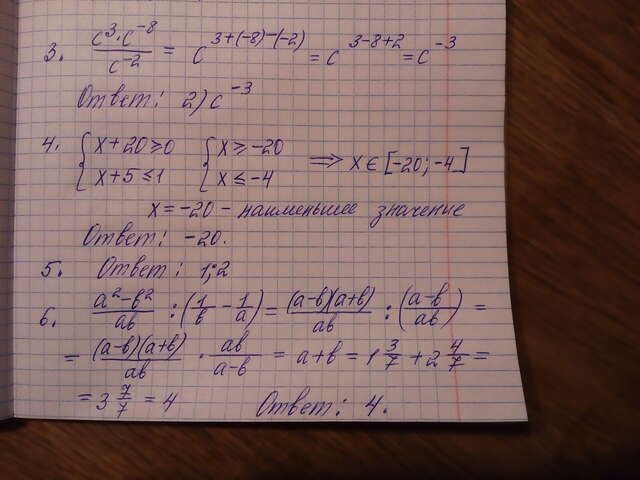 3. c³·c⁻⁸/c⁻² = c³⁺⁽⁻⁸⁾⁻⁽⁻²⁾ = c³⁻⁸⁺² = c⁻³
Ответ: 2) c⁻³
4. { x+20≥0 { x≥-20 ⟹ x∈[-20;-4]
x+5≤1 x≤-4
x=-20 - наименьшее значение
Ответ: -20.
5. Ответ: 1;2
6. a²-b²/ab : (1/b - 1/a) = (a-b)(a+b)/ab : (a-b/ab) =
= (a-b)(a+b)/ab · ab/a-b = a+b = 1 3/7 + 2 4/7 =
= 3 7/7 = 4 Ответ: 4.